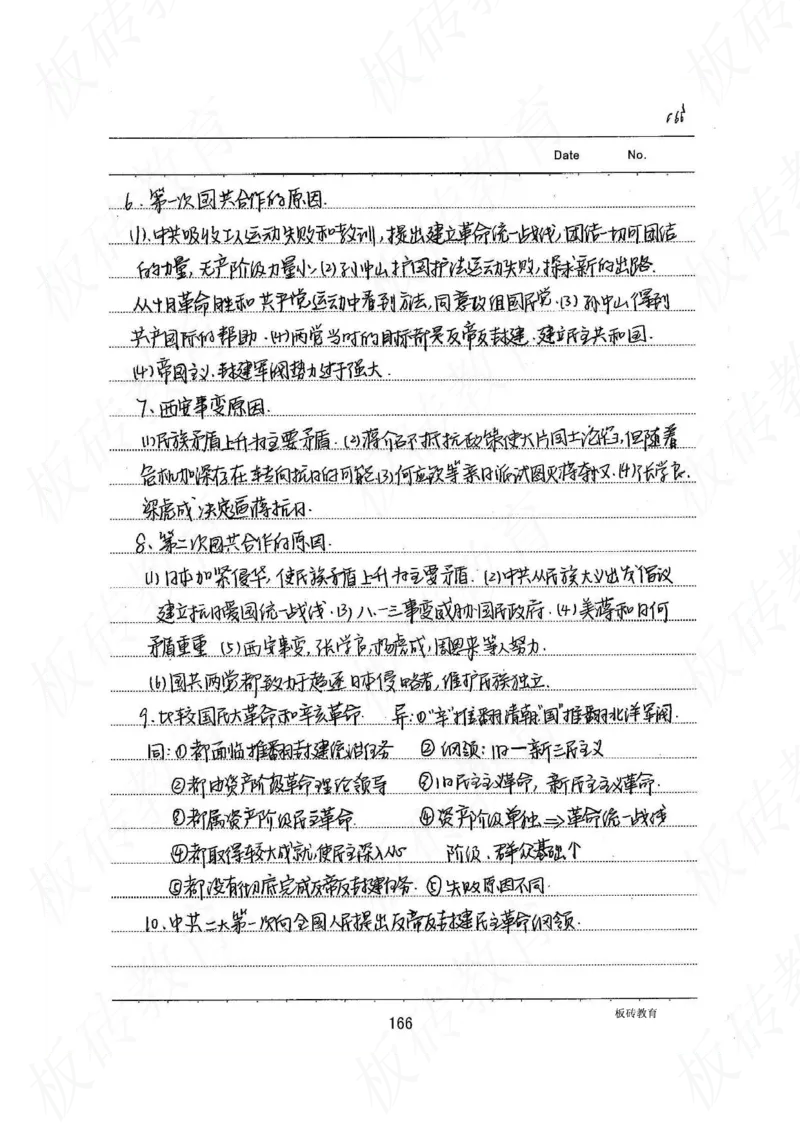 166
Date No.
6、第一次国共合作的原因.
(1).中共吸收工人运动失败和教训,提出建立革命统一战线,团结一切可团结
的力量,无产阶级力量小.(2)孙中山护国护法运动失败,探求新的出路.
从十月革命胜和共产党运动中看到方法,同意改组国民党.(3)孙中山得到
共产国际的帮助.(4)两党当时的目标都是反帝反封建.建立民主共和国.
(4)帝国主义.封建军阀势力过于强大.
7、西安事变原因.
(1)民族矛盾上升为主要矛盾.(2)蒋介石不抵抗政策使大片国土沦陷,但随着
危机加深存在转向抗日的可能.(3)何应钦等亲日派试图灭蒋夺权.(4)张学良.
深虎成决定逼蒋抗日.
8、第二次国共合作的原因.
(1)日本加紧侵华,使民族矛盾上升为主要矛盾.(2)中共从民族大义出发倡议
建立抗日爱国统一战线.(3)八一三事变威胁国民政府.(4)美蒋和日何
矛盾重重 (5)西安事变,张学良,杨虎成,周恩来等人努力.
(6)国共两党都致力于趋逐日本侵略者,维护民族独立.
9.比较国民大革命和辛亥革命. 异:①"辛"推翻清朝"国"推翻北洋军阀.
同:①都面临推翻封建统治任务 ②纲领:旧一新三民主义
②都由资产阶级革命理论领导 ③旧民主主义革命,新民主主义革命.
③都属资产阶级民主革命. ④资产阶级单独⇒革命统一战线
④都取得较大成就,使民主深入心 阶级、群众基础↑
⑤都没有彻底完成反帝反封建任务. ⑤失败原因不同.
10、中共二大第一次向全国人民提出反帝反封建民主革命纲领.
166
板砖教育